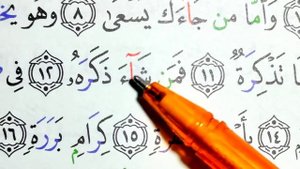 وَأَمَّا مَن جَآءَكَ يَسْعَىٰ ٨ وَهُوَ يَخْ
تَذْكِرَةٌ ١١ فَمَن شَآءَ ذَكَرَهُۥ ١٢ فِى
١٤ بِأَ رَةٍ ١٥ كِرَامِۭ بَرَرَةٍ ١٦